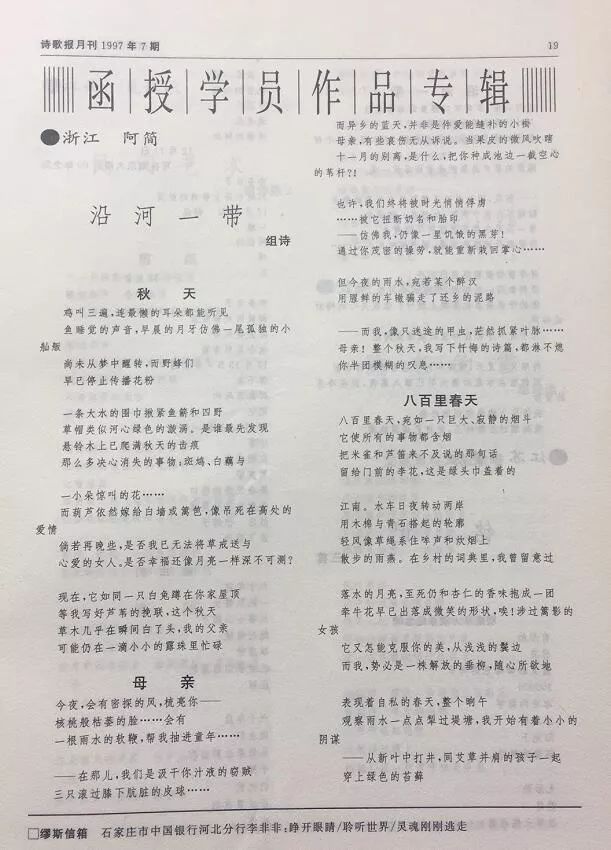 诗歌报月刊 1997 年 7 期
19
函授学员作品专辑
●浙江 阿简
沿河一带
组诗
秋 天
鸡叫三遍,连最懒的耳朵都能听见
鱼睡觉的声音,早晨的月牙仿佛一尾孤独的小
舢舨
尚未从梦中醒转,而野蜂们
早已停止传播花粉
一条大水的围巾揪紧鱼箭和四野
草帽类似河心绿色的漩涡。是谁最先发现
悬铃木上已爬满秋天的击痕
那么多决心消失的事物:斑鸠、白藕与
一小朵惊叫的花……
而葫芦依然嫁给白墙或篱笆,像吊死在高处的
爱情
倘若再晚些,是否我已无法将草戒送与
心爱的女人。是否幸福还像月亮一样深不可测?
现在,它如同一只白兔蹲在你家屋顶
等我写好芦苇的挽联,这个秋天
草木几乎在瞬间白了头,我的父亲
可能仍在一滴小小的露珠里忙碌
母 亲
今夜,会有密探的风,梳亮你——
核桃般枯萎的脸……会有
一根雨水的软鞭,帮我抽进童年……
——在那儿,我们是汲干你汁液的窃贼
三只滚过膝下肮脏的皮球……
而异乡的蓝天,并非是件爱能缝补的小褂
母亲,有些哀伤无从诉说。当果皮的微风吹嘻
十一月的别离,是什么,把你种成池边一截空心
的苇杆?!
也许,我们终将被时光悄悄俘虏
……被它扭断奶名和胎印
——仿佛我,仍像一星饥饿的黑芽!
通过你茂密的操劳,就能重新栽回掌心……
但今夜的雨水,宛若某个醉汉
用腥鲜的车辙骗走了还乡的泥路
——而我,像只迷途的甲虫,茫然抓紧叶脉……
母亲!整个秋天,我写下忏悔的诗篇,都淋不燃
你半团模糊的叹息……
八百里春天
八百里春天,宛如一只巨大、寂静的烟斗
它使所有的事物都含烟
把米雀和芦笛来不及说的那句话
留给门前的李花,这是绿头巾盖着的
江南。水车日夜转动两岸
用木棉与青石搭起的轮廓
轻风像草绳系住哞声和炊烟上
散步的雨燕。在乡村的词典里,我曾留意过
落水的月亮,至死仍和杏仁的香味抱成一团
牵牛花早已出落成微笑的形状,唉!涉过篱影的
女孩
它又怎能克服你的美,从浅浅的鬓边
而我,势必是一株解放的垂柳,随心所欲地
表现着自私的春天,整个晌午
观察雨水一点点犁过堤塘,我开始有着小小的
阴谋
——从新叶中打井,同艾草并肩的孩子一起
穿上绿色的苔藓
□缪斯信箱 石家庄市中国银行河北分行李非非:睁开眼睛/聆听世界/灵魂刚刚逃走